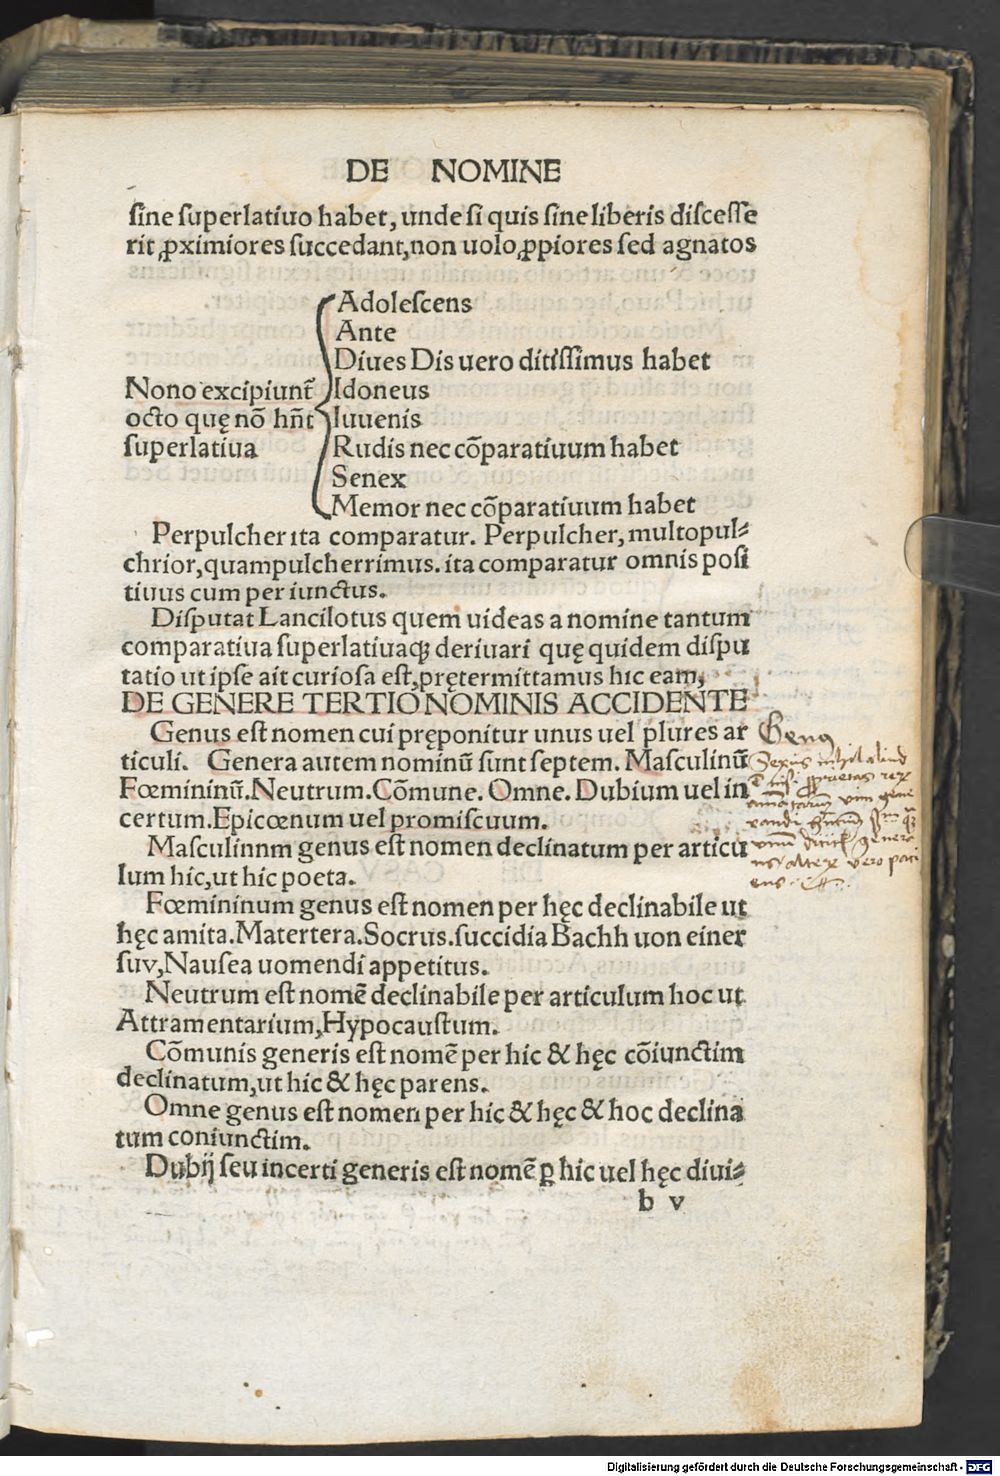 DE NOMINE
sine superlatiuo habet, unde si quis sine liberis discesse
rit, ꝓximiores succedant, non uolo, ꝓpiores sed agnatos
Adolescens
Ante
Diues Dis uero ditissimus habet
Nono excipiunt̃ Idoneus
octo quę nõ hñt Iuuenis
superlatiua Rudis nec cõparatiuum habet
Senex
Memor nec cõparatiuum habet
Perpulcher ita comparatur. Perpulcher, multopul⸗
chrior, quampulcherrimus. ita comparatur omnis posi
tiuus cum per iunctus.
Disputat Lancilotus quem uideas a nomine tantum
comparatiua superlatiuaqꝫ deriuari quę quidem dispu
tatio ut ipse ait curiosa est, prętermittamus hic eam,
DE GENERE TERTIO NOMINIS ACCIDENTE
Genus est nomen cui pręponitur unus uel plures ar
ticuli. Genera autem nominũ sunt septem. Masculinũ
Fœmininũ. Neutrum. Cõmune. Omne. Dubium uel in
certum. Epicœnum uel promiscuum.
Masculinnm genus est nomen declinatum per articu
lum hic, ut hic poeta.
Fœmininum genus est nomen per hęc declinabile ut
hęc amita. Matertera. Socrus. succidia Bachh uon einer
suv, Nausea uomendi appetitus.
Neutrum est nomẽ declinabile per articulum hoc ut
Attramentarium, Hypocaustum.
Cõmunis generis est nomẽ per hic & hęc cõiunctim
declinatum, ut hic & hęc parens.
Omne genus est nomen per hic & hęc & hoc declina
tum coniunctim.
Dubij seu incerti generis est nomẽ ꝑ hic uel hęc diui⸗
b v
Genus
Sexus nihil aliud
Digitalisierung gefördert durch die Deutsche Forschungsgemeinschaft - DFG